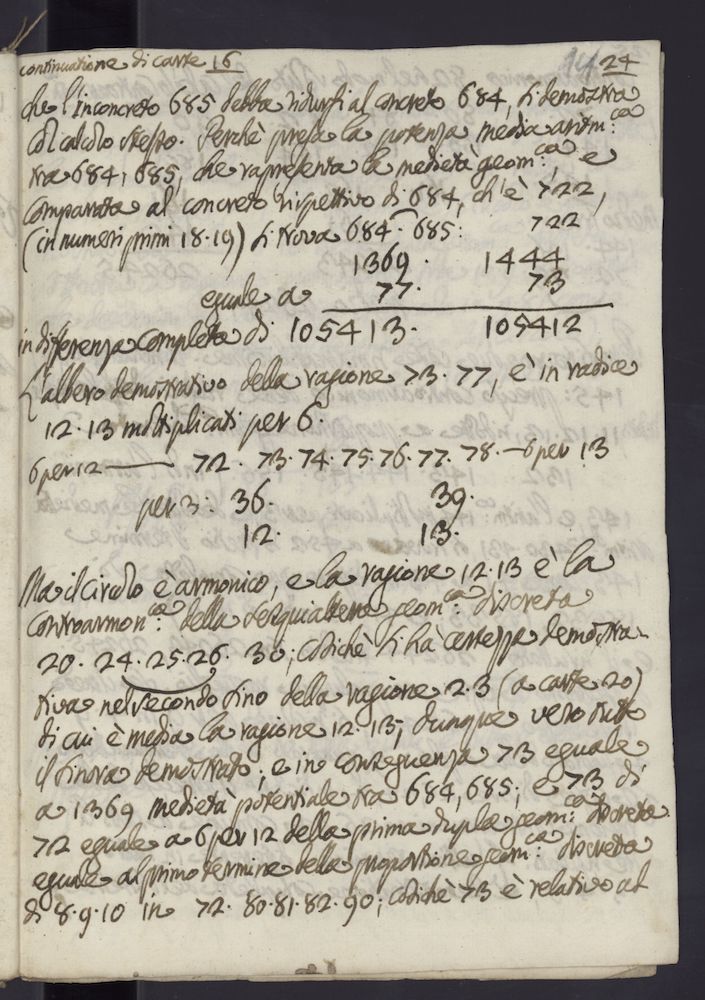 continuatione di carte 16 24
che l'inconcreto 685 debba ridursi al concreto 684, si demostra
col calcolo stesso. Perchè presa la potenza media aritm:ca
tra 684, 685, che rapresenta la medietà geom:ca, e
comparata al concreto rispettivo di 684, ch'è 722,
(in numeri primi 18·19) si trova 684 · 685: 722
1369· 1444
eguale a 77· 73
in differenza completa di 105413· 105412
L'albero demostrativo della ragione 73·77, è in radice
12·13 moltiplicati per 6·
6 per 12 —— 72·73·74·75·76·77·78·—6 per 13
per 3: 36· 39·
12· 13·
Ma il circolo è armonico, e la ragione 12·13 è la
controarmon:ca della sesquialtera geom:ca discreta
20·24·25·26·30; cosichè si hà certezza demostra-
tiva nel secondo sino della ragione 2·3 (a carte 20)
di cui è messa la ragione 12·13; dunque vero tutto
il sinora demostrato; e in conseguenza 73 eguale
a 1369 medietà potentiale tra 684, 685; e 73 di
72 eguale a 6 per 12 della prima dupla geom:ca discreta
eguale al primo termine della proportione geom:ca discreta
di 8·9·10 in 72·80·81·82·90; cosichè 73 è relativo al